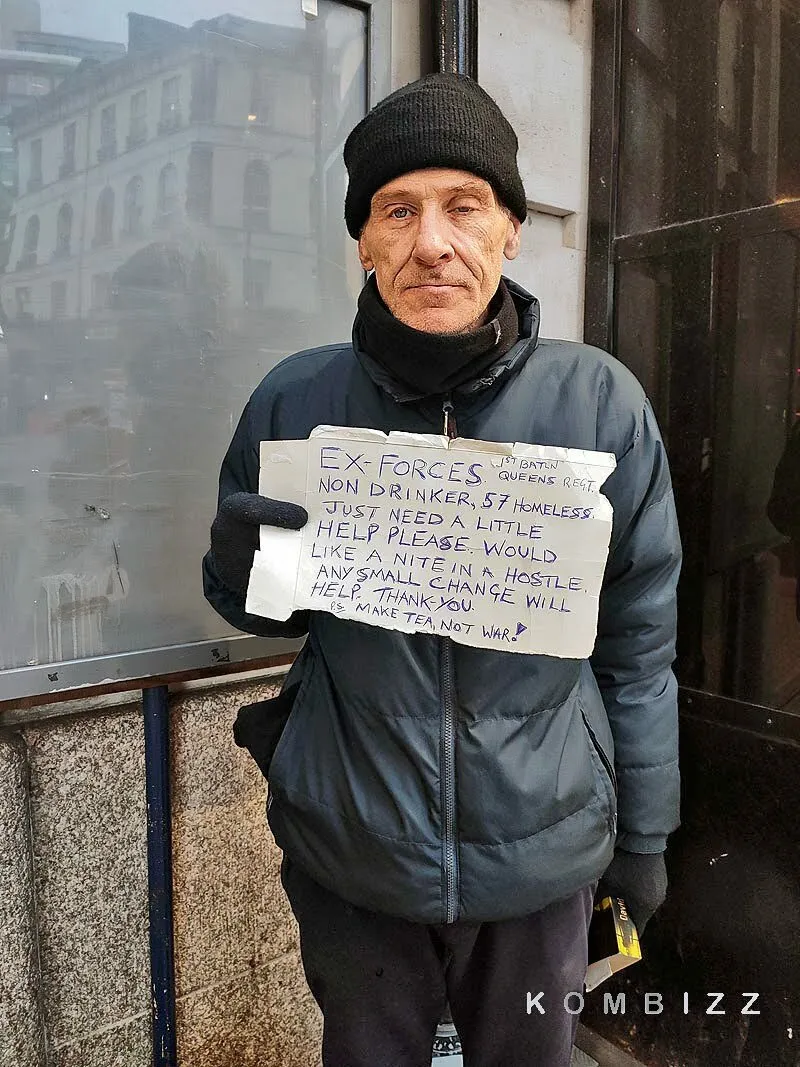 EX-FORCES. 1ST BATLN
QUEENS REGT.
NON DRINKER, 57 HOMELESS.
JUST NEED A LITTLE
HELP PLEASE. WOULD
LIKE A NITE IN A HOSTLE.
ANY SMALL CHANGE WILL
HELP. THANK-YOU.
P.S MAKE TEA, NOT WAR!
KOMBIZZ